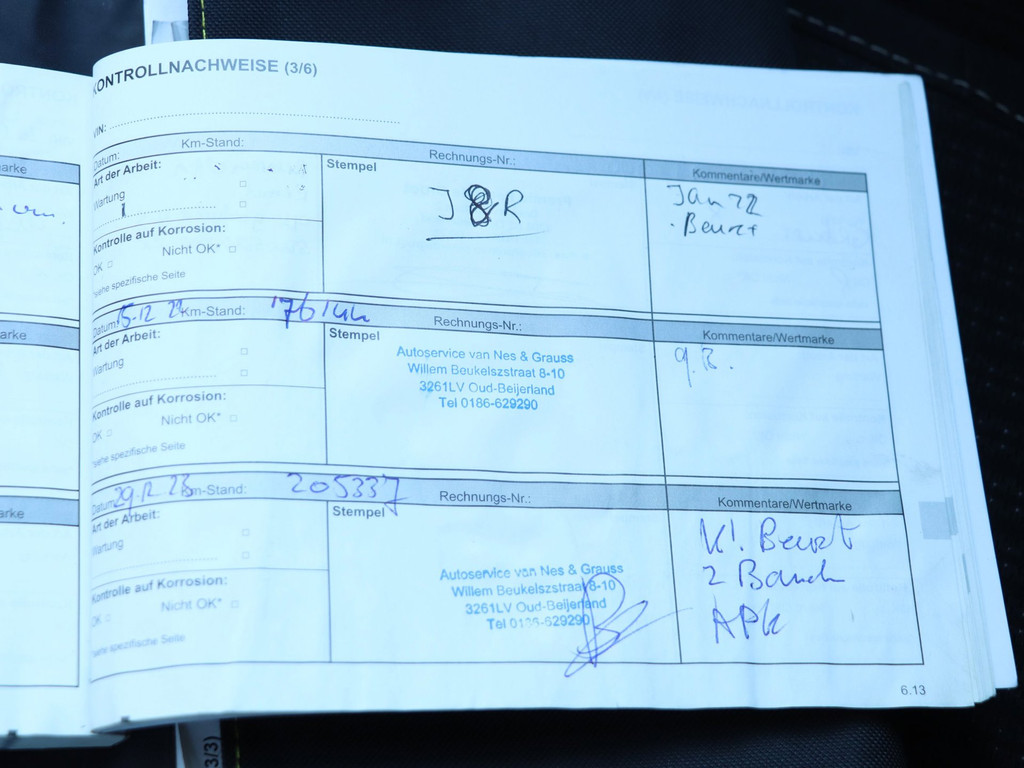 KONTROLLNACHWEISE (3/6)
VIN:
Datum: Km-Stand: Rechnungs-Nr.: Kommentare/Wertmarke
Art der Arbeit:
Wartung
Kontrolle auf Korrosion:
OK Nicht OK*
*siehe spezifische Seite
Stempel
J&R
Jan 22
Beurt
Datum: 15-12 22 Km-Stand: 176144 Rechnungs-Nr.: Kommentare/Wertmarke
Art der Arbeit:
Wartung
Kontrolle auf Korrosion:
OK Nicht OK*
*siehe spezifische Seite
Stempel
Autoservice van Nes & Grauss
Willem Beukelszstraat 8-10
3261LV Oud-Beijerland
Tel 0186-629290
g.B.
Datum: 29.12 23 Km-Stand: 205337 Rechnungs-Nr.: Kommentare/Wertmarke
Art der Arbeit:
Wartung
Kontrolle auf Korrosion:
OK Nicht OK*
*siehe spezifische Seite
Stempel
Autoservice van Nes & Grauss
Willem Beukelszstraat 8-10
3261LV Oud-Beijerland
Tel 0186-629290
K! Beurt
2 Banden
APK
6.13
arke
arke
arke
3/3)